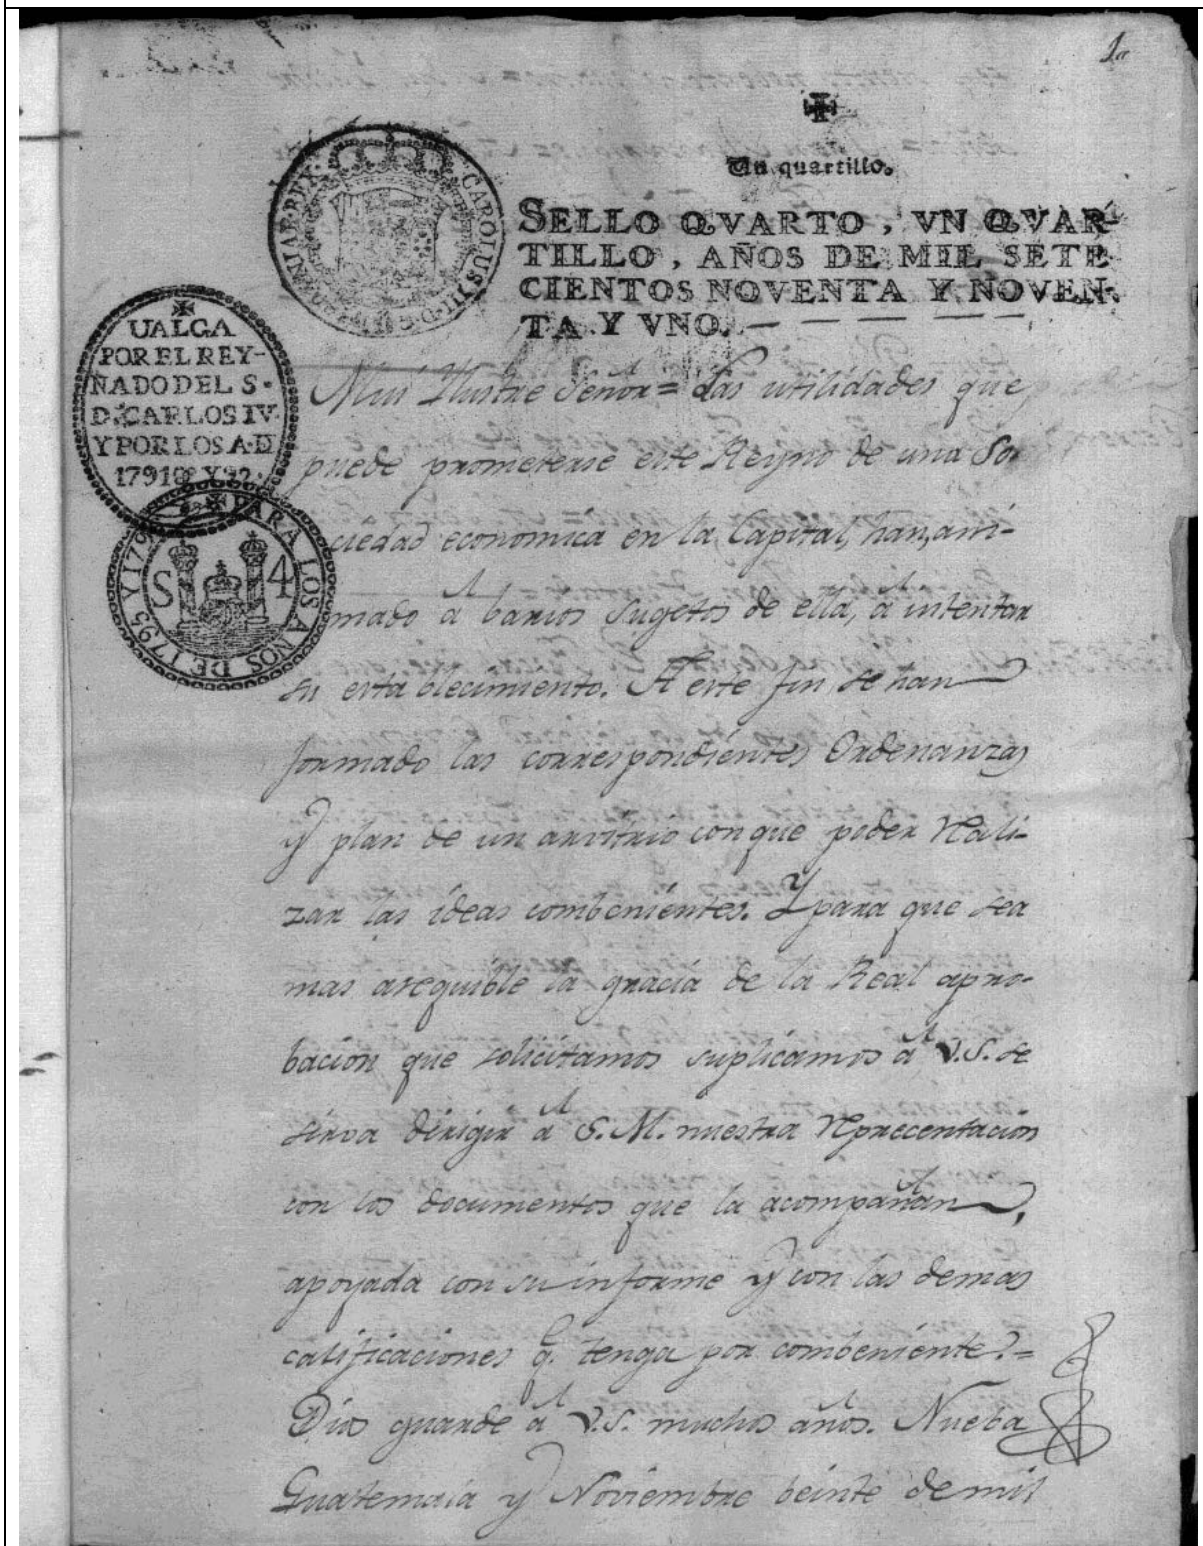 1.
Un quartillo.
SELLO QVARTO, VN QVAR-
TILLO, AÑOS DE MIL SETE-
CIENTOS NOVENTA Y NOVEN-
TA Y VNO.
CAROLUS III D.G. HISPANIAR. REX
UALGA
POR EL REY-
NADO DEL S.
D. CARLOS IV.
Y POR LOS A. D
1791 Y 92.
PARA LOS AÑOS DE 1795 Y 179
S 4
Mui Ilustre Señor = Las utilidades que
puede prometerse este Reyno de una So
ciedad economica en la Capital, han ani-
mado á barios Sugetos de ella, á intentar
su establecimiento. A este fin se han
formado las correspondientes Ordenanzas
y plan de un arvitrio con que poder reali-
zar las ideas combenientes. Y para que sea
mas asequible la gracia de la Real apro-
bacion que solicitamos suplicamos á V.S. se
sirva dirigir á S. M. nuestra reprecentacion
con los documentos que la acompañan,
apoyada con su informe y con las demas
calificaciones q. tenga por combeniente. =
Dios guarde á V.S. muchos años. Nueba
Guatemala y Noviembre beinte de mil